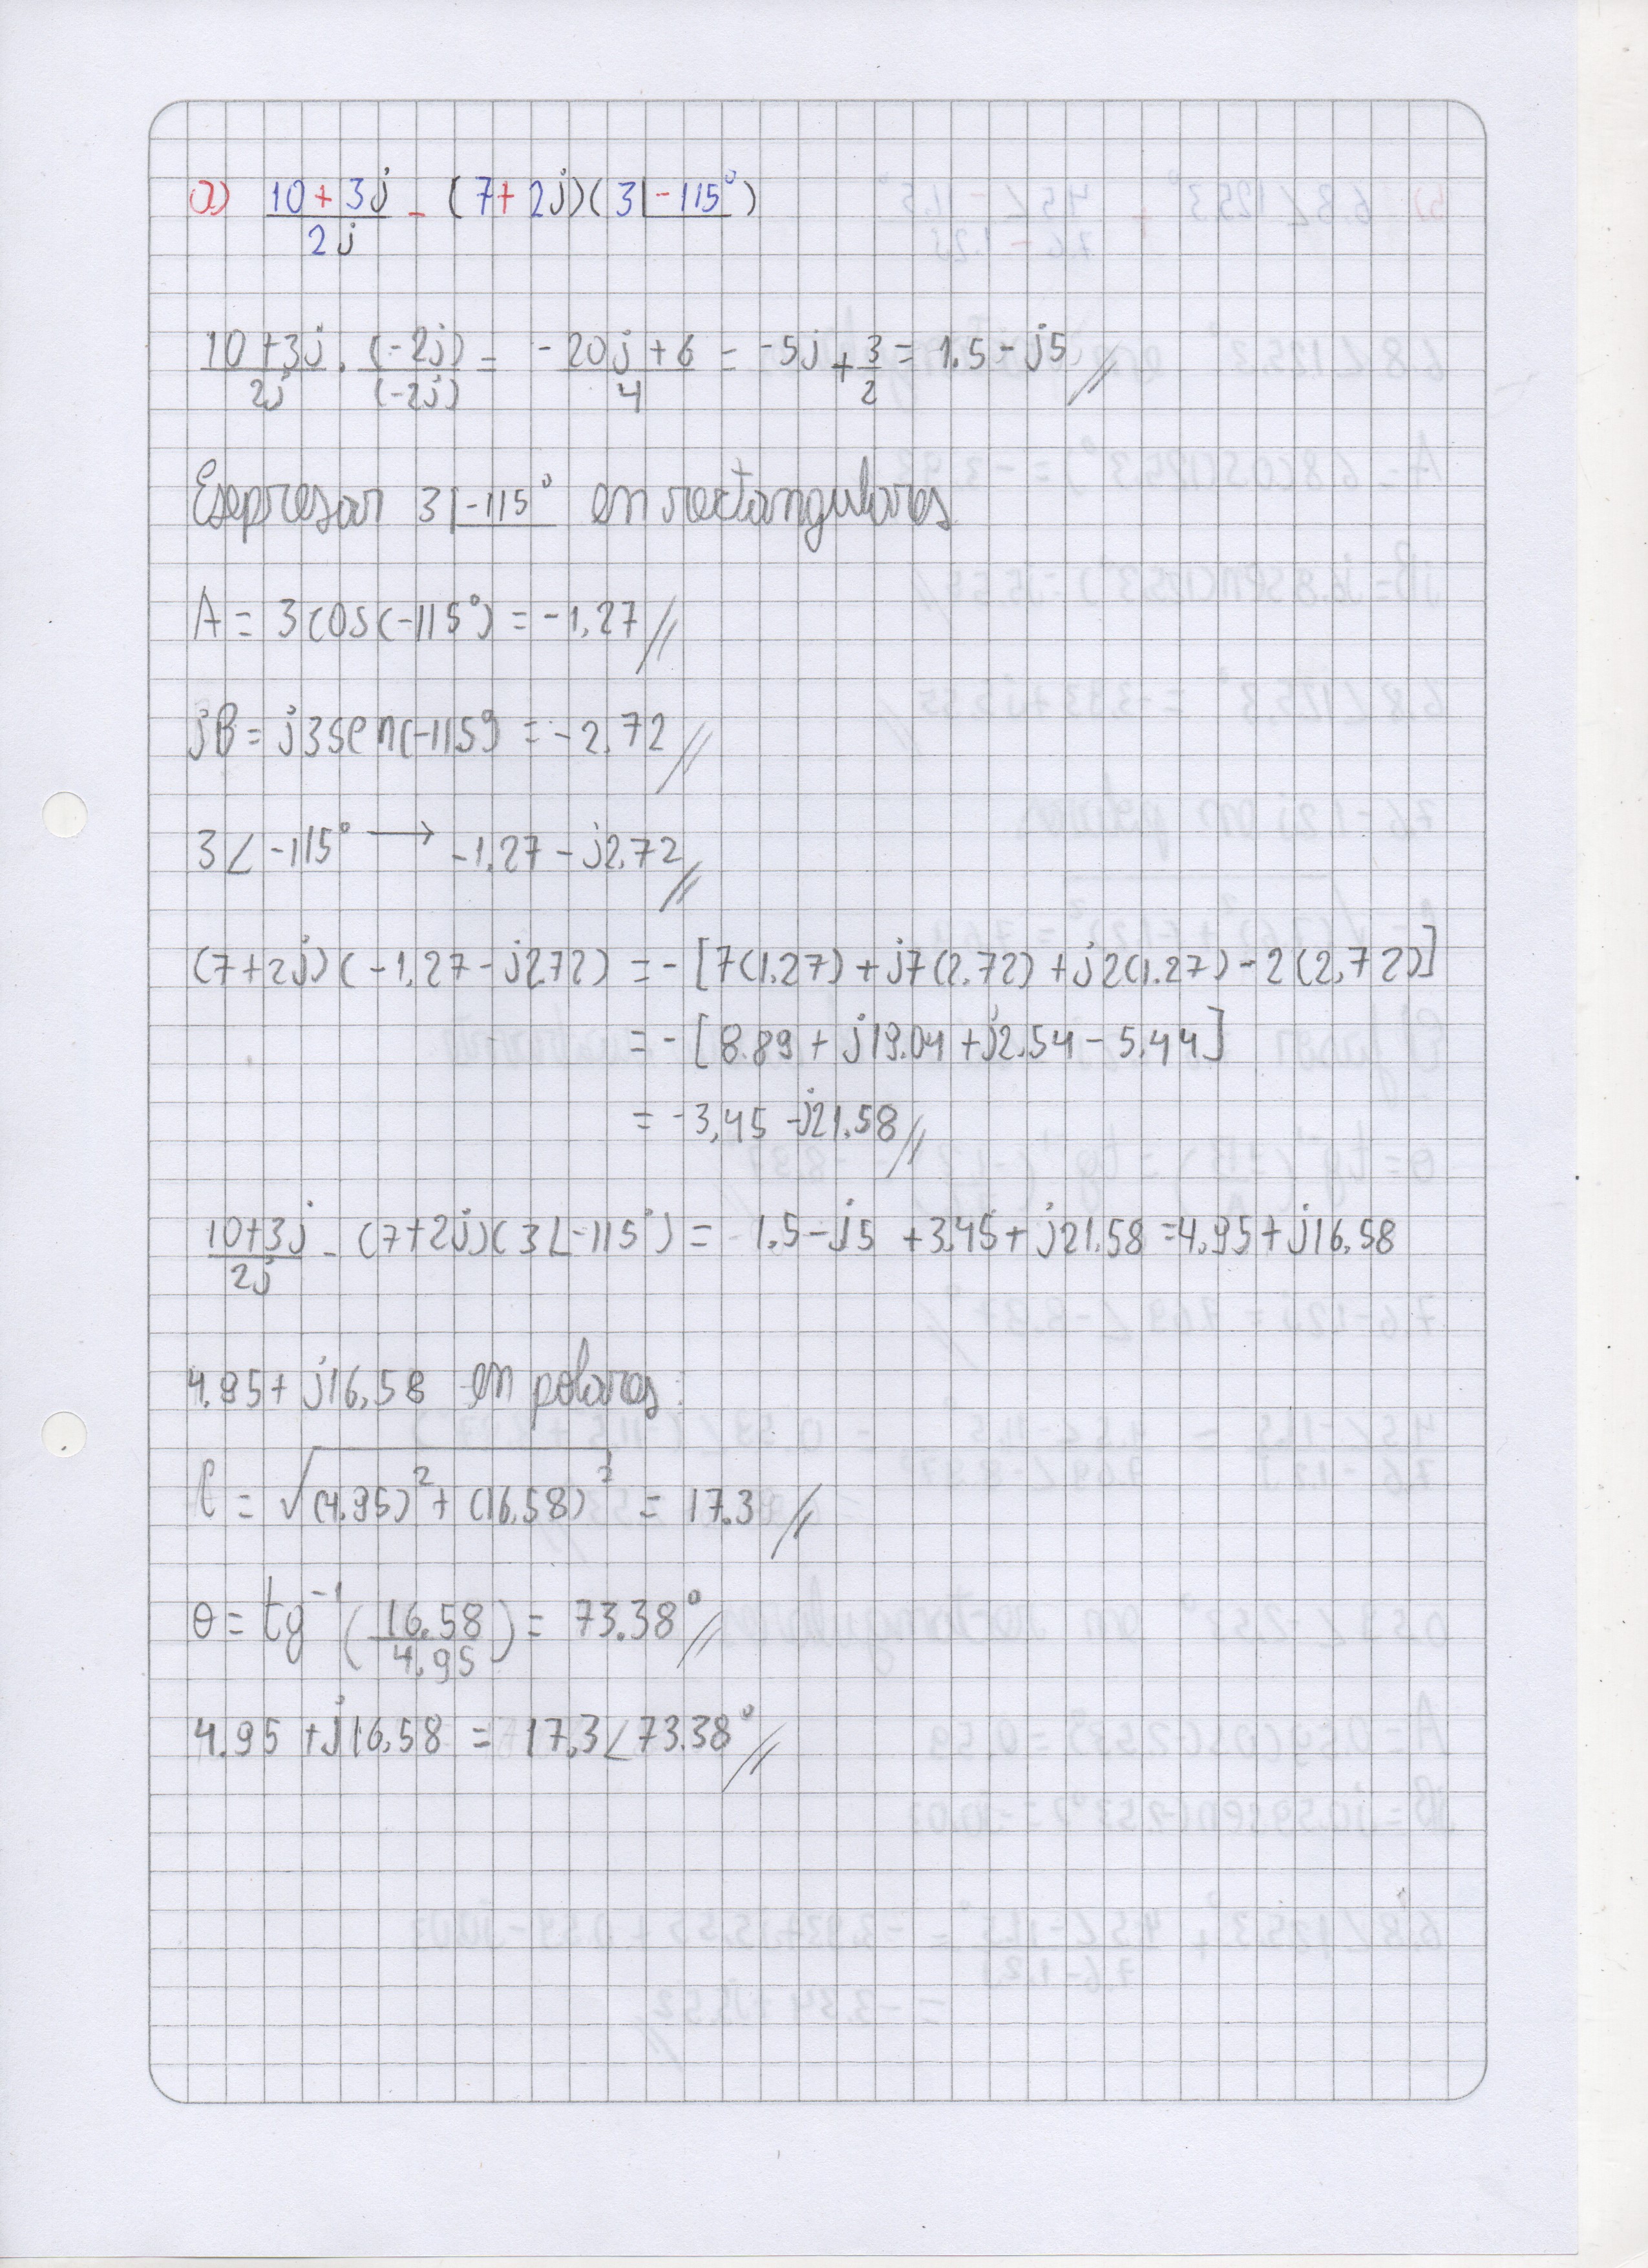 a) (10 + 3j)/(2j) - (7+2j)(3∠-115°)
(10+3j)/(2j) · (-2j)/(-2j) = (-20j+6)/4 = -5j + 3/2 = 1.5 - j5 //
Esepresar 3∠-115° en rectangulares
A = 3cos(-115°) = -1,27 //
jB = j3sen(-115º) = -2,72 //
3∠-115° → -1.27 - j2,72 //
(7+2j)(-1,27-j2.72) = -[7(1.27) + j7(2.72) + j2(1.27) - 2(2,72)]
= -[8.89 + j19.04 + j2.54 - 5.44]
= -3,45 - j21.58 //
(10+3j)/(2j) - (7+2j)(3∠-115°) = 1.5-j5 +3.45+j21.58 = 4.95+j16.58
4.95+j16,58 en polares:
C = √((4.95)² + (16,58)²) = 17.3 //
θ = tg⁻¹(16.58/4.95) = 73.38° //
4.95 + j16.58 = 17.3∠73.38° //